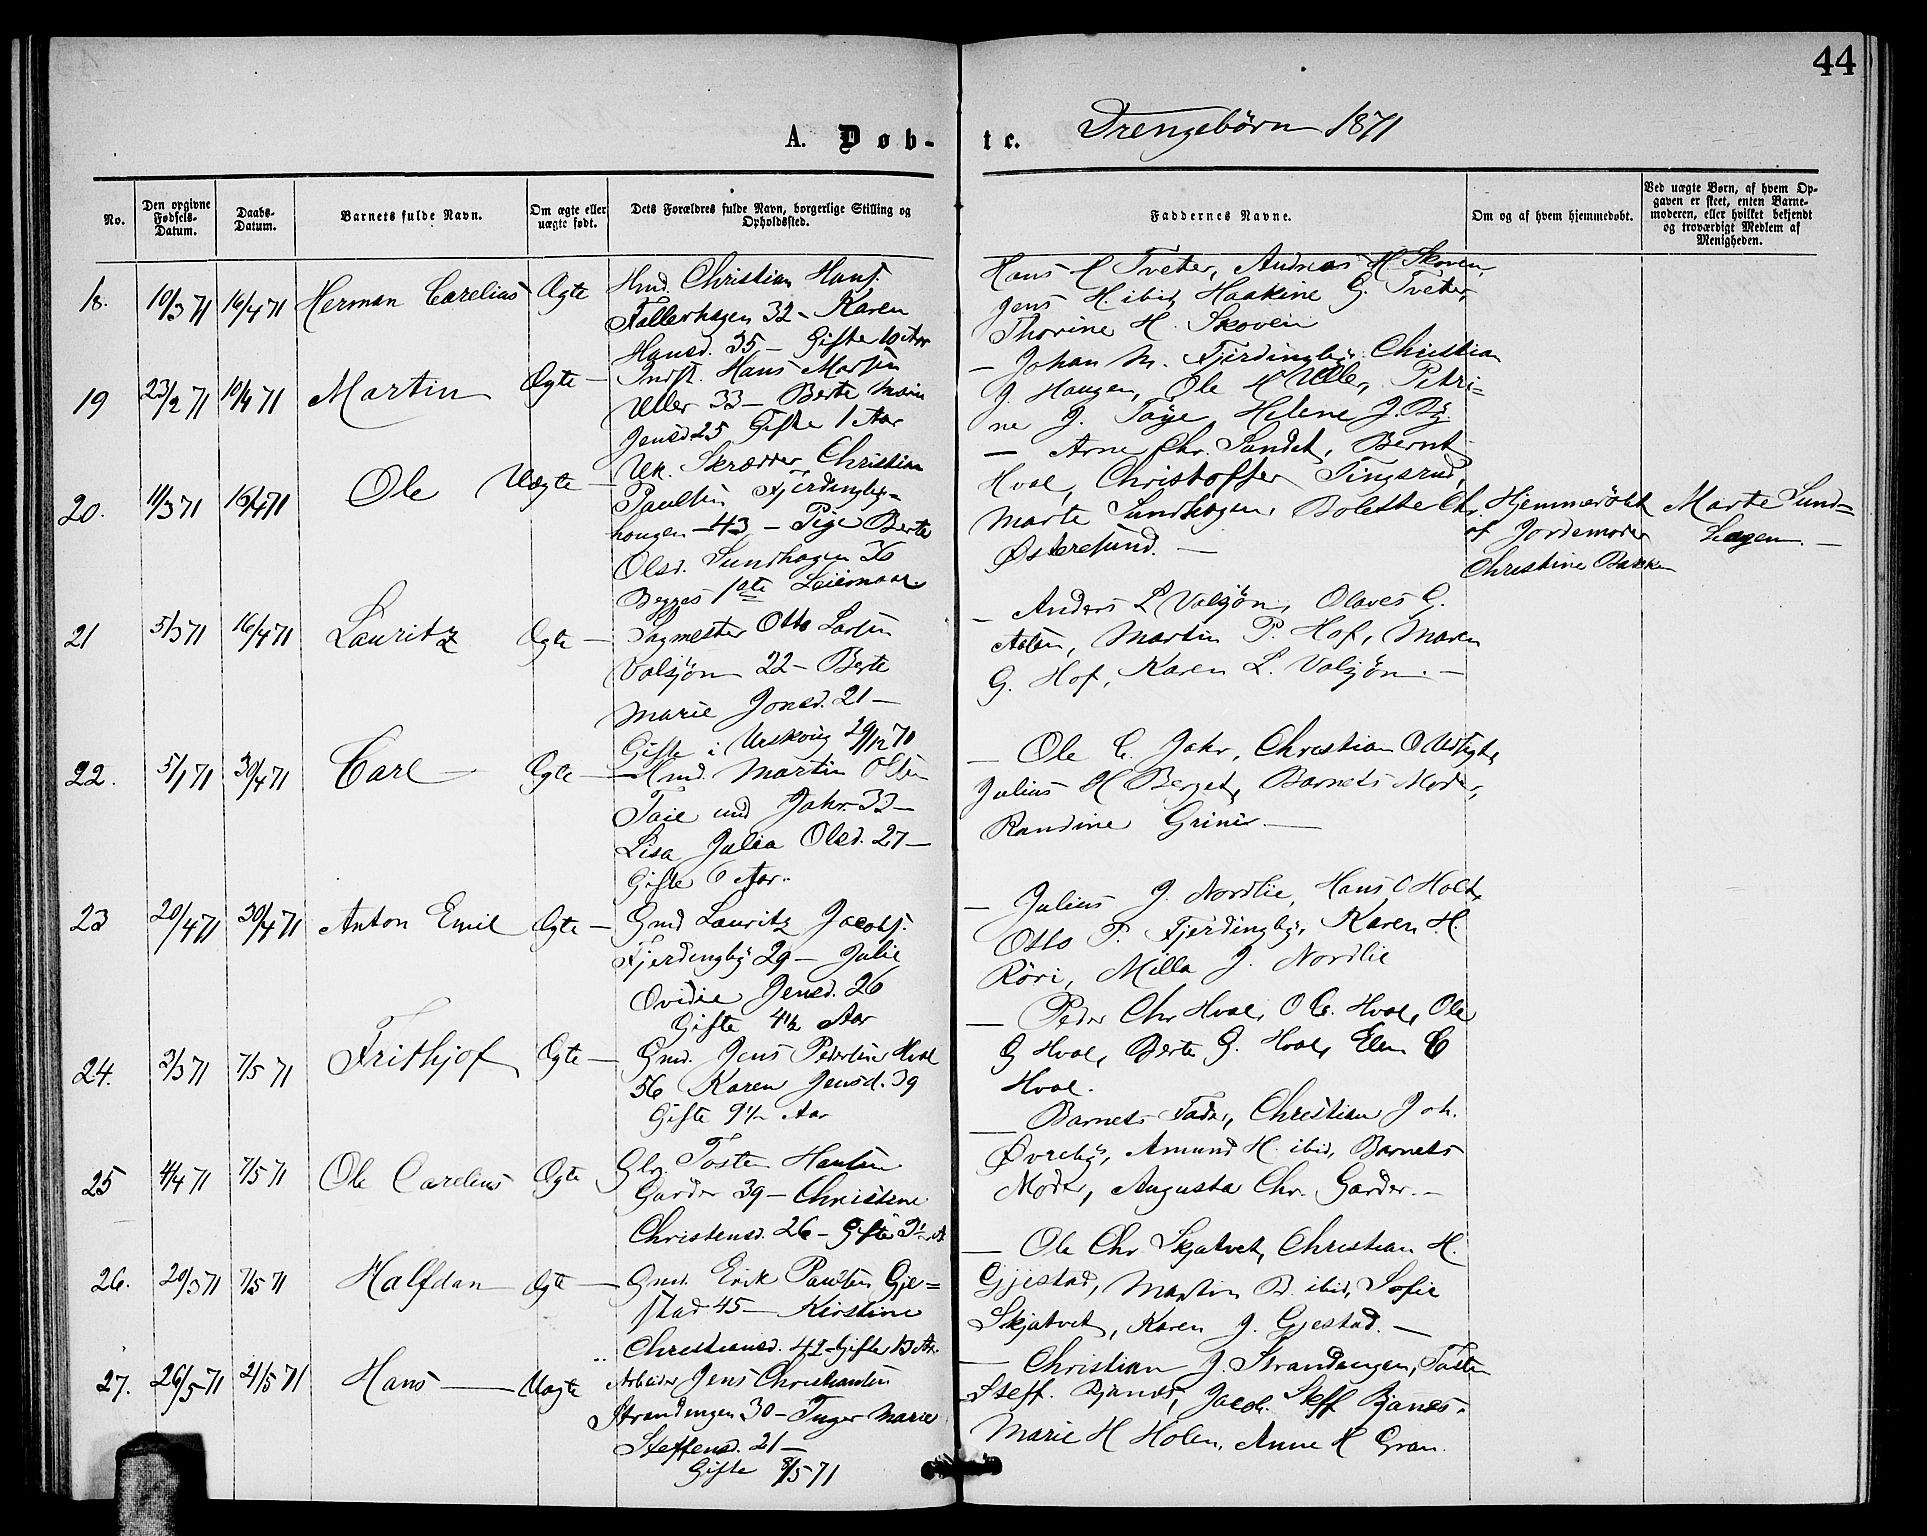 44
A. Døb-
te. Drengebørn 1871
No.
Den opgivne Fødsels-Datum.
Daabs-Datum.
Barnets fulde Navn.
Om ægte eller uægte født.
Dets Forældres fulde Navn, borgerlige Stilling og Opholdssted.
Faddernes Navne.
Om og af hvem hjemmedøbt.
Ved uægte Børn, af hvem Opgaven er skeet, enten Barnemoderen, eller hvilket bekjendt og troværdigt Medlem af Menigheden.
18. 10/3 71 16/4 71 Herman Carelius Ægte
Hmd. Christian Hans.
Fallerhagen 32 - Karen
Hansd. 35 - Gifte 10 Aar
Hans C Tveter, Andreas H. Skoven,
Jens H. ibid, Haakine G. Tveter,
Thorine H. Skoven
19 23/2 71 10/4 71 Martin Ægte -
Indst. Hans Marsen
Uller 33 - Berte Marie
Jensd 25 Gifte 1 Aar
- Johan M. Fjerdingby, Christian
J. Haugen, Ole H Uller, Petri-
ne J. Toye, Helene J. By
20. 11/3 71 16/4 71 Ole Uægte -
Uk. Skrædder Christian
Paulsen Fjerdingby-
haugen - 43 - Pige Berte
Olsd. Sundhagen 36
Begges 1ste Leiermaal.
- Arne Chr. Sundet, Bernt
Hval, Christoffer Tingsrud,
Marte Sundhagen, Bolette Chr.
Østeresund. -
Hjemmedøbt
af Jordemoder
Christine Bakken
Marte Sund-
hagen. -
21 5/3 71 16/4 71 Lauritz Ægte -
Sagmester Otto Larsen
Valsjøn 22 - Berte
Marie Jonsd. 21 -
Gifte i Urskoug 29/12 70
- Anders L Valsjøn, Olaves G.
Aasen, Martin P. Hof, Maren
G. Hof, Karen L. Valsjøn. -
22. 5/1 71 30/4 71 Carl - Ægte -
Hmd. Martin Olsen
Taie und Jahr 33 -
Lisa Julia Olsd. 27 -
Gifte 6 Aar.
- Ole C. Jahr, Christian O
Julius H Berget, Barnets Moder,
Randine Griner -
23 20/4 71 30/4 71 Anton Emil Ægte -
Gmd Lauritz Jacobs.
Fjerdingby 29 - Julie
Ovidie Jensd. 26
Gifte 4 1/2 Aar
- Julius J. Nordlie, Hans O Holt,
Otto P. Fjerdingby, Karen H.
Röri, Milla J. Nordlie
24. 2/3 71 7/5 71 Frithjof Ægte -
Gmd. Jens Pedersen Hval
56 Karen Jensd. 39
Gifte 9 1/2 Aar
- Peder Chr Hval, O C. Hval, Ole
G Hval, Berte G. Hval, Elen C
Hval.
25 4/4 71 7/5 71 Ole Carelius Ægte
Glr. Tosten Hansen
Garder 39 - Christine
Christensd. 26 - Gifte
- Barnets Fader, Christian Joh.
Øvreby, Amund H. ibid, Barnets
Moder, Augusta Chr. Garder. -
26. 20/3 71 7/5 71 Halfdan Ægte -
Gmd. Erik Paulsen Gje-
stad 45 - Kirstine
Christiansd. 42 - Gifte 13 Ar.
- Ole Chr Skjatvet, Christian H.
Gjestad, Martin B. ibid, Sofie
Skjatvet, Karen J. Gjestad. -
27. 26/5 71 21/5 71 Hans - Uægte
Arbeider Jens Christiansen
Strandengen 30 - Inger Marie
Steffensd. 21 -
Gifte 8/5 71
- Christian J. Strandengen, Tosten
Steff. Bjanes, Jacob Steff Bjanes.
Marie H Holen, Anne H Gran.